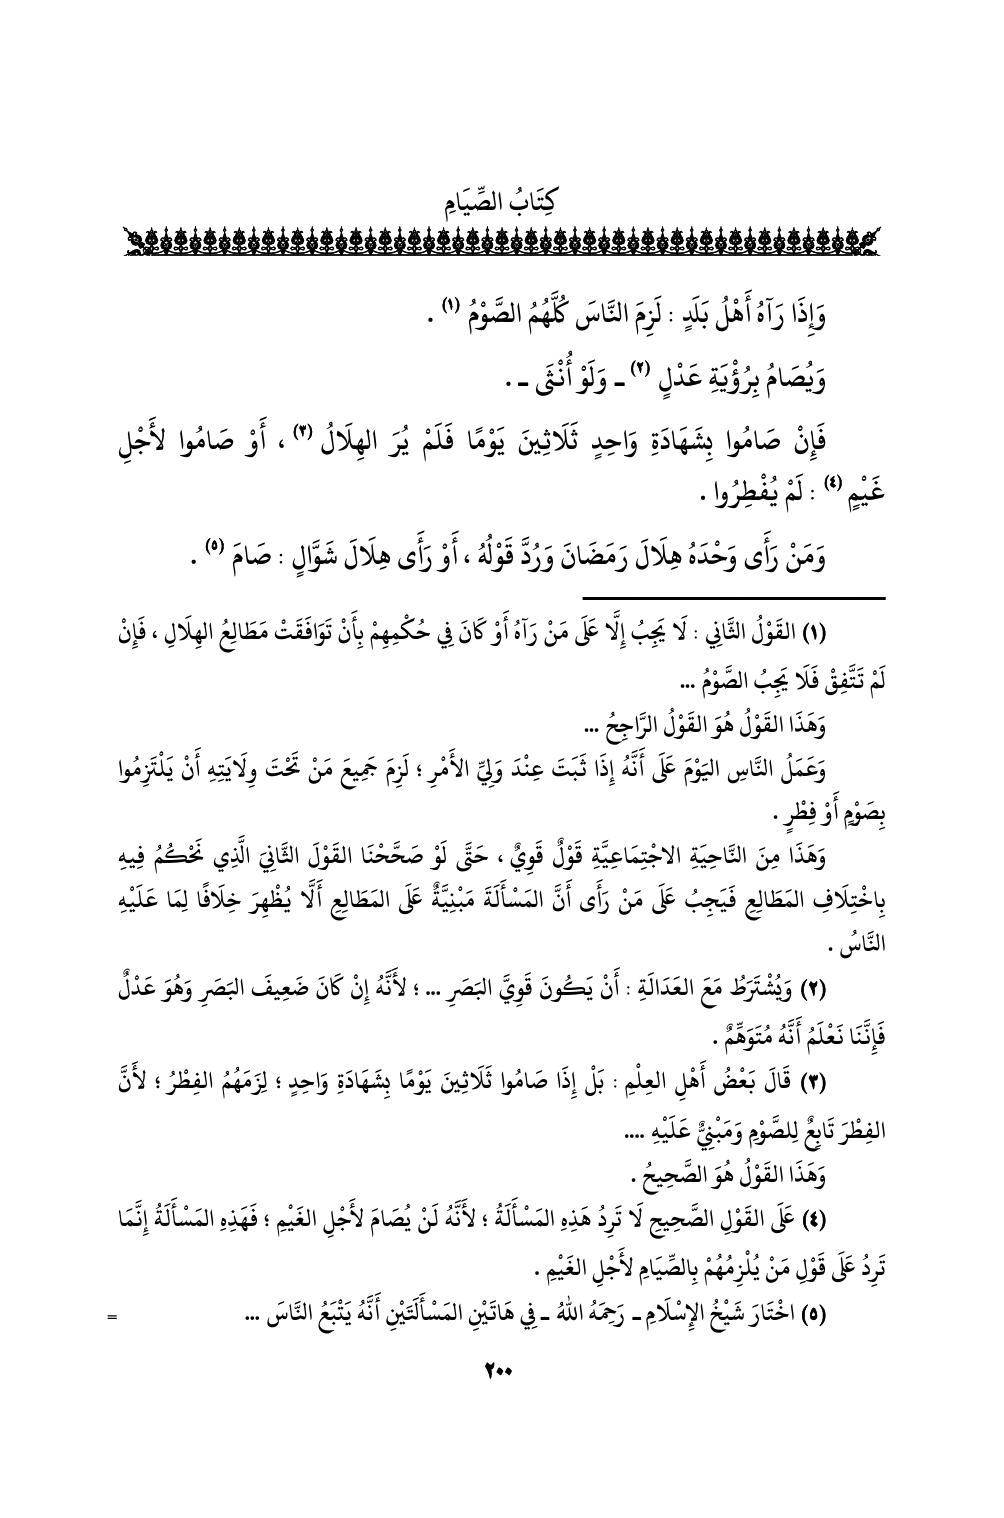 كِتَابُ الصِّيَامِ
وَإِذَا رَآهُ أَهْلُ بَلَدٍ : لَزِمَ النَّاسَ كُلَّهُمُ الصَّوْمُ (١) .
وَيُصَامُ بِرُؤْيَةِ عَدْلٍ (٢) ـ وَلَوْ أُنْثَى ـ .
فَإِنْ صَامُوا بِشَهَادَةِ وَاحِدٍ ثَلَاثِينَ يَوْمًا فَلَمْ يُرَ الهِلَالُ (٣) ، أَوْ صَامُوا لأَجْلِ
غَيْمٍ (٤) : لَمْ يُفْطِرُوا .
وَمَنْ رَأَى وَحْدَهُ هِلَالَ رَمَضَانَ وَرُدَّ قَوْلُهُ ، أَوْ رَأَى هِلَالَ شَوَّالٍ : صَامَ (٥) .
(١) القَوْلُ الثَّانِي : لَا يَجِبُ إِلَّا عَلَى مَنْ رَآهُ أَوْ كَانَ فِي حُكْمِهِمْ بِأَنْ تَوَافَقَتْ مَطَالِعُ الهِلَالِ ، فَإِنْ
لَمْ تَتَّفِقْ فَلَا يَجِبُ الصَّوْمُ ...
وَهَذَا القَوْلُ هُوَ القَوْلُ الرَّاجِحُ ...
وَعَمَلُ النَّاسِ اليَوْمَ عَلَى أَنَّهُ إِذَا ثَبَتَ عِنْدَ وَلِيِّ الأَمْرِ ؛ لَزِمَ جَمِيعَ مَنْ تَحْتَ وِلَايَتِهِ أَنْ يَلْتَزِمُوا
بِصَوْمٍ أَوْ فِطْرٍ .
وَهَذَا مِنَ النَّاحِيَةِ الاجْتِمَاعِيَّةِ قَوْلٌ قَوِيٌّ ، حَتَّى لَوْ صَحَّحْنَا القَوْلَ الثَّانِيَ الَّذِي نَحْكُمُ فِيهِ
بِاخْتِلَافِ المَطَالِعِ فَيَجِبُ عَلَى مَنْ رَأَى أَنَّ المَسْأَلَةَ مَبْنِيَّةٌ عَلَى المَطَالِعِ أَلَّا يُظْهِرَ خِلَافًا لِمَا عَلَيْهِ
النَّاسُ .
(٢) وَيُشْتَرَطُ مَعَ العَدَالَةِ : أَنْ يَكُونَ قَوِيَّ البَصَرِ ... ؛ لأَنَّهُ إِنْ كَانَ ضَعِيفَ البَصَرِ وَهُوَ عَدْلٌ
فَإِنَّنَا نَعْلَمُ أَنَّهُ مُتَوَهِّمٌ .
(٣) قَالَ بَعْضُ أَهْلِ العِلْمِ : بَلْ إِذَا صَامُوا ثَلَاثِينَ يَوْمًا بِشَهَادَةِ وَاحِدٍ ؛ لِزَمَهُمُ الفِطْرُ ؛ لأَنَّ
الفِطْرَ تَابِعٌ لِلصَّوْمِ وَمَبْنِيٌّ عَلَيْهِ ....
وَهَذَا القَوْلُ هُوَ الصَّحِيحُ .
(٤) عَلَى القَوْلِ الصَّحِيحِ لَا تَرِدُ هَذِهِ المَسْأَلَةُ ؛ لأَنَّهُ لَنْ يُصَامَ لأَجْلِ الغَيْمِ ؛ فَهَذِهِ المَسْأَلَةُ إِنَّمَا
تَرِدُ عَلَى قَوْلِ مَنْ يُلْزِمُهُمْ بِالصِّيَامِ لأَجْلِ الغَيْمِ .
(٥) اخْتَارَ شَيْخُ الإِسْلَامِ ـ رَحِمَهُ اللهُ ـ فِي هَاتَيْنِ المَسْأَلَتَيْنِ أَنَّهُ يَتْبَعُ النَّاسَ ... =
٢٠٠